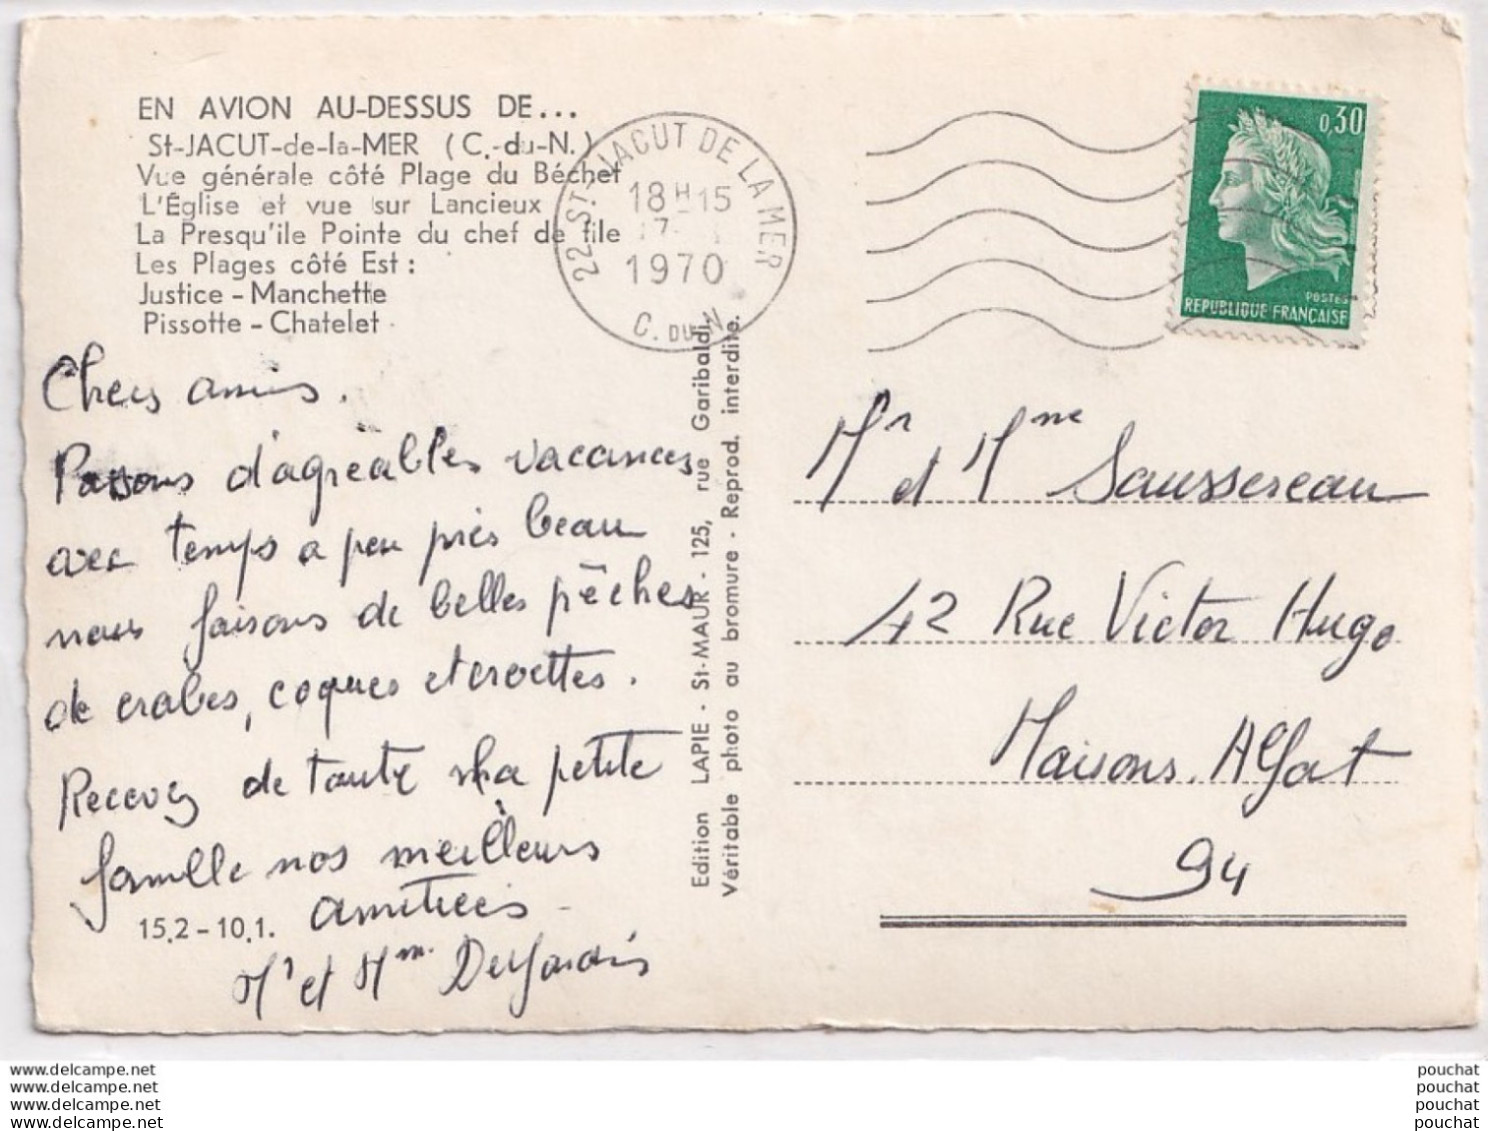 EN AVION AU-DESSUS DE...
St-JACUT-de-la-MER (C.-du-N.)
Vue générale côté Plage du Béchet
L'Église et vue sur Lancieux
La Presqu'ile Pointe du chef de file
Les Plages côté Est :
Justice - Manchette
Pissotte - Chatelet
22 ST-JACUT DE LA MER
18H15
1970
C. DU N
0,30
POSTES
REPUBLIQUE FRANÇAISE
Chers amis.
Passons d'agréables vacances
avec temps a peu près beau
nous faisons de belles pêches
de crabes, coques et crevettes.
Recevez de toute la petite
famille nos meilleurs
amitiées -
Mr et Mm. Desjardins
15.2 - 10.1.
Edition LAPIE - St-MAUR - 125, rue Garibaldi.
Véritable photo au bromure - Reprod. interdite.
Mr et Mme Saussereau
42 Rue Victor Hugo
Maisons. Alfort
94
www.delcampe.net
www.delcampe.net
www.delcampe.net
www.delcampe.net
pouchat
pouchat
pouchat
pouchat